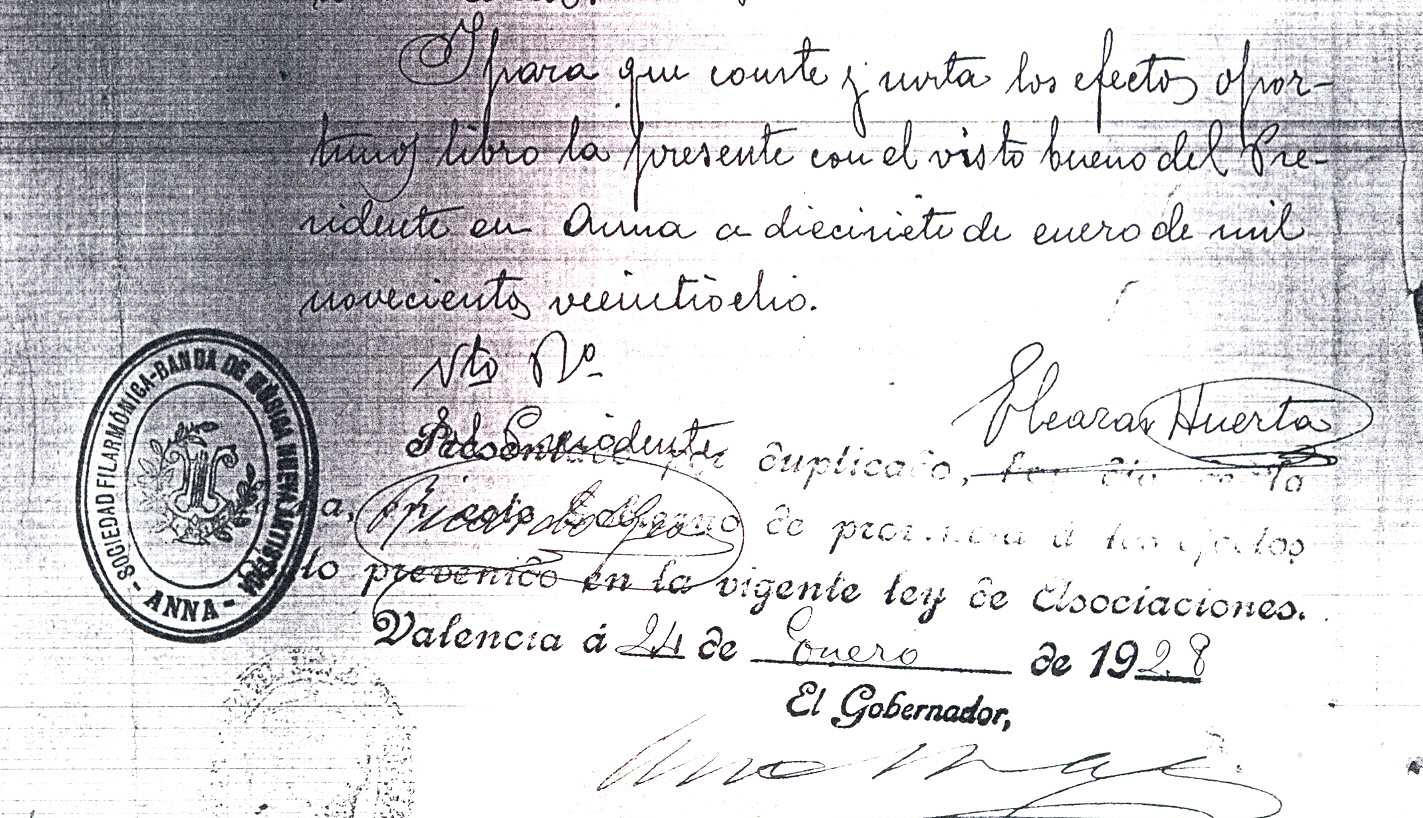 Y para que conste y surta los efectos opor-
tunos libro la presente con el visto bueno del Pre-
sidente en Anna a diecisiete de enero de mil
novecientos veintiocho.
Vto Bº
El Presidente
Eleazar Huerta
SOCIEDAD FILARMÓNICA-BANDA DE MÚSICA NUEVA ARTÍSTICA
- ANNA -
Presentado por duplicado,
de provincia á los efectos
de lo prevenido en la vigente ley de Asociaciones.
Valencia á 24 de Enero de 1928
El Gobernador,